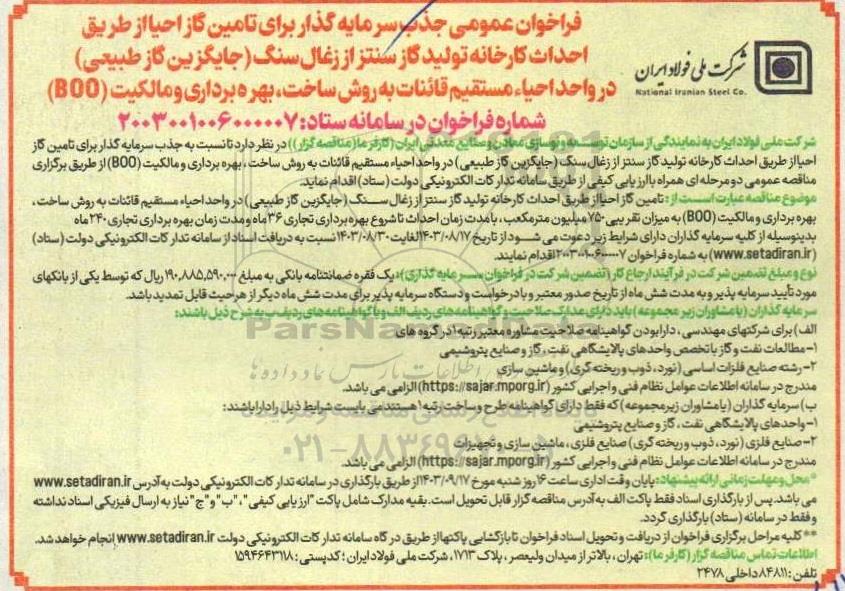 فراخوان عمومی جذب سرمایه گذار برای تامین گاز احیا از طریق
احداث کارخانه تولید گاز سنتز از زغال سنگ (جایگزین گاز طبیعی)
در واحد احیاء مستقیم قائنات به روش ساخت، بهره برداری و مالکیت (BOO)
شرکت ملی فولاد ایران
National Iranian Steel Co.
شماره فراخوان در سامانه ستاد: ۲۰۰۳۰۰۱۰۰۶۰۰۰۰۰۷
شرکت ملی فولاد ایران به نمایندگی از سازمان توسعه و نوسازی معادن و صنایع معدنی ایران (کارفرما (مناقصه گزار)) در نظر دارد تا نسبت به جذب سرمایه گذار برای تامین گاز
احیا از طریق احداث کارخانه تولید گاز سنتز از زغال سنگ (جایگزین گاز طبیعی) در واحد احیاء مستقیم قائنات به روش ساخت، بهره برداری و مالکیت (BOO) از طریق برگزاری
مناقصه عمومی دو مرحله ای همراه با ارزیابی کیفی از طریق سامانه تدارکات الکترونیکی دولت (ستاد) اقدام نماید.
موضوع مناقصه عبارت است از: تامین گاز احیا از طریق احداث کارخانه تولید گاز سنتز از زغال سنگ (جایگزین گاز طبیعی) در واحد احیاء مستقیم قائنات به روش ساخت،
بهره برداری و مالکیت (BOO) به میزان تقریبی ۷۵۰ میلیون مترمکعب، با مدت زمان احداث تا شروع بهره برداری تجاری ۳۶ ماه و مدت زمان بهره برداری تجاری ۲۴۰ ماه
بدینوسیله از کلیه سرمایه گذاران دارای شرایط زیر دعوت می شود از تاریخ ۱۴۰۳/۰۸/۱۷ لغایت ۱۴۰۳/۰۸/۳۰ نسبت به دریافت اسناد از سامانه تدارکات الکترونیکی دولت (ستاد)
(www.setadiran.ir) به شماره فراخوان ۲۰۰۳۰۰۱۰۰۶۰۰۰۰۰۷ اقدام نمایند.
نوع و مبلغ تضمین شرکت در فرآیند ارجاع کار (تضمین شرکت در فراخوان سرمایه گذاری): یک فقره ضمانتنامه بانکی به مبلغ ۱۹۰,۸۸۵,۵۹۰,۰۰۰ ریال که توسط یکی از بانکهای
مورد تأیید سرمایه پذیر و به مدت شش ماه از تاریخ صدور معتبر و با درخواست و دستگاه سرمایه پذیر برای مدت شش ماه دیگر از هر حیث قابل تمدید باشد.
سرمایه گذاران (یا مشاوران زیرمجموعه) باید دارای مدارک صلاحیت و گواهینامه های ردیف الف و یا گواهینامه های ردیف ب به شرح ذیل باشند:
الف) برای شرکتهای مهندسی، دارا بودن گواهینامه صلاحیت مشاوره معتبر رتبه ۱ در گروه های
۱- مطالعات نفت و گاز با تخصص واحدهای پالایشگاهی نفت، گاز و صنایع پتروشیمی
۲- رشته صنایع فلزات اساسی (نورد، ذوب و ریخته گری) و ماشین سازی
مندرج در سامانه اطلاعات عوامل نظام فنی و اجرایی کشور (https://sajar.mporg.ir) الزامی می باشد.
ب) سرمایه گذاران (یا مشاوران زیرمجموعه) که فقط دارای گواهینامه طرح و ساخت رتبه ۱ هستند می بایست شرایط ذیل را دارا باشند:
۱- واحدهای پالایشگاهی نفت، گاز و صنایع پتروشیمی
۲- صنایع فلزی (نورد، ذوب و ریخته گری) صنایع فلزی، ماشین سازی و تجهیزات
مندرج در سامانه اطلاعات عوامل نظام فنی و اجرایی کشور (https://sajar.mporg.ir) الزامی می باشد.
*محل و مهلت زمانی ارائه پیشنهاد: پایان وقت اداری ساعت ۱۶ روز شنبه مورخ ۱۴۰۳/۰۹/۱۷ از طریق بارگذاری در سامانه تدارکات الکترونیکی دولت به آدرس www.setadiran.ir
می باشد. پس از بارگذاری اسناد فقط پاکت الف به آدرس مناقصه گزار قابل تحویل است. بقیه مدارک شامل پاکت "ارزیابی کیفی"، "ب" و "ج" نیاز به ارسال فیزیکی اسناد نداشته
و فقط در سامانه (ستاد) بارگذاری گردد.
**کلیه مراحل برگزاری فراخوان از دریافت و تحویل اسناد فراخوان تا بازگشایی پاکتها از طریق درگاه سامانه تدارکات الکترونیکی دولت www.setadiran.ir انجام خواهد شد.
اطلاعات تماس مناقصه گزار (کارفرما): تهران، بالاتر از میدان ولیعصر، پلاک ۱۷۱۳، شرکت ملی فولاد ایران؛ کدپستی: ۱۵۹۴۶۴۳۱۱۸
تلفن: ۸۴۸۱۱ داخلی ۲۴۷۸